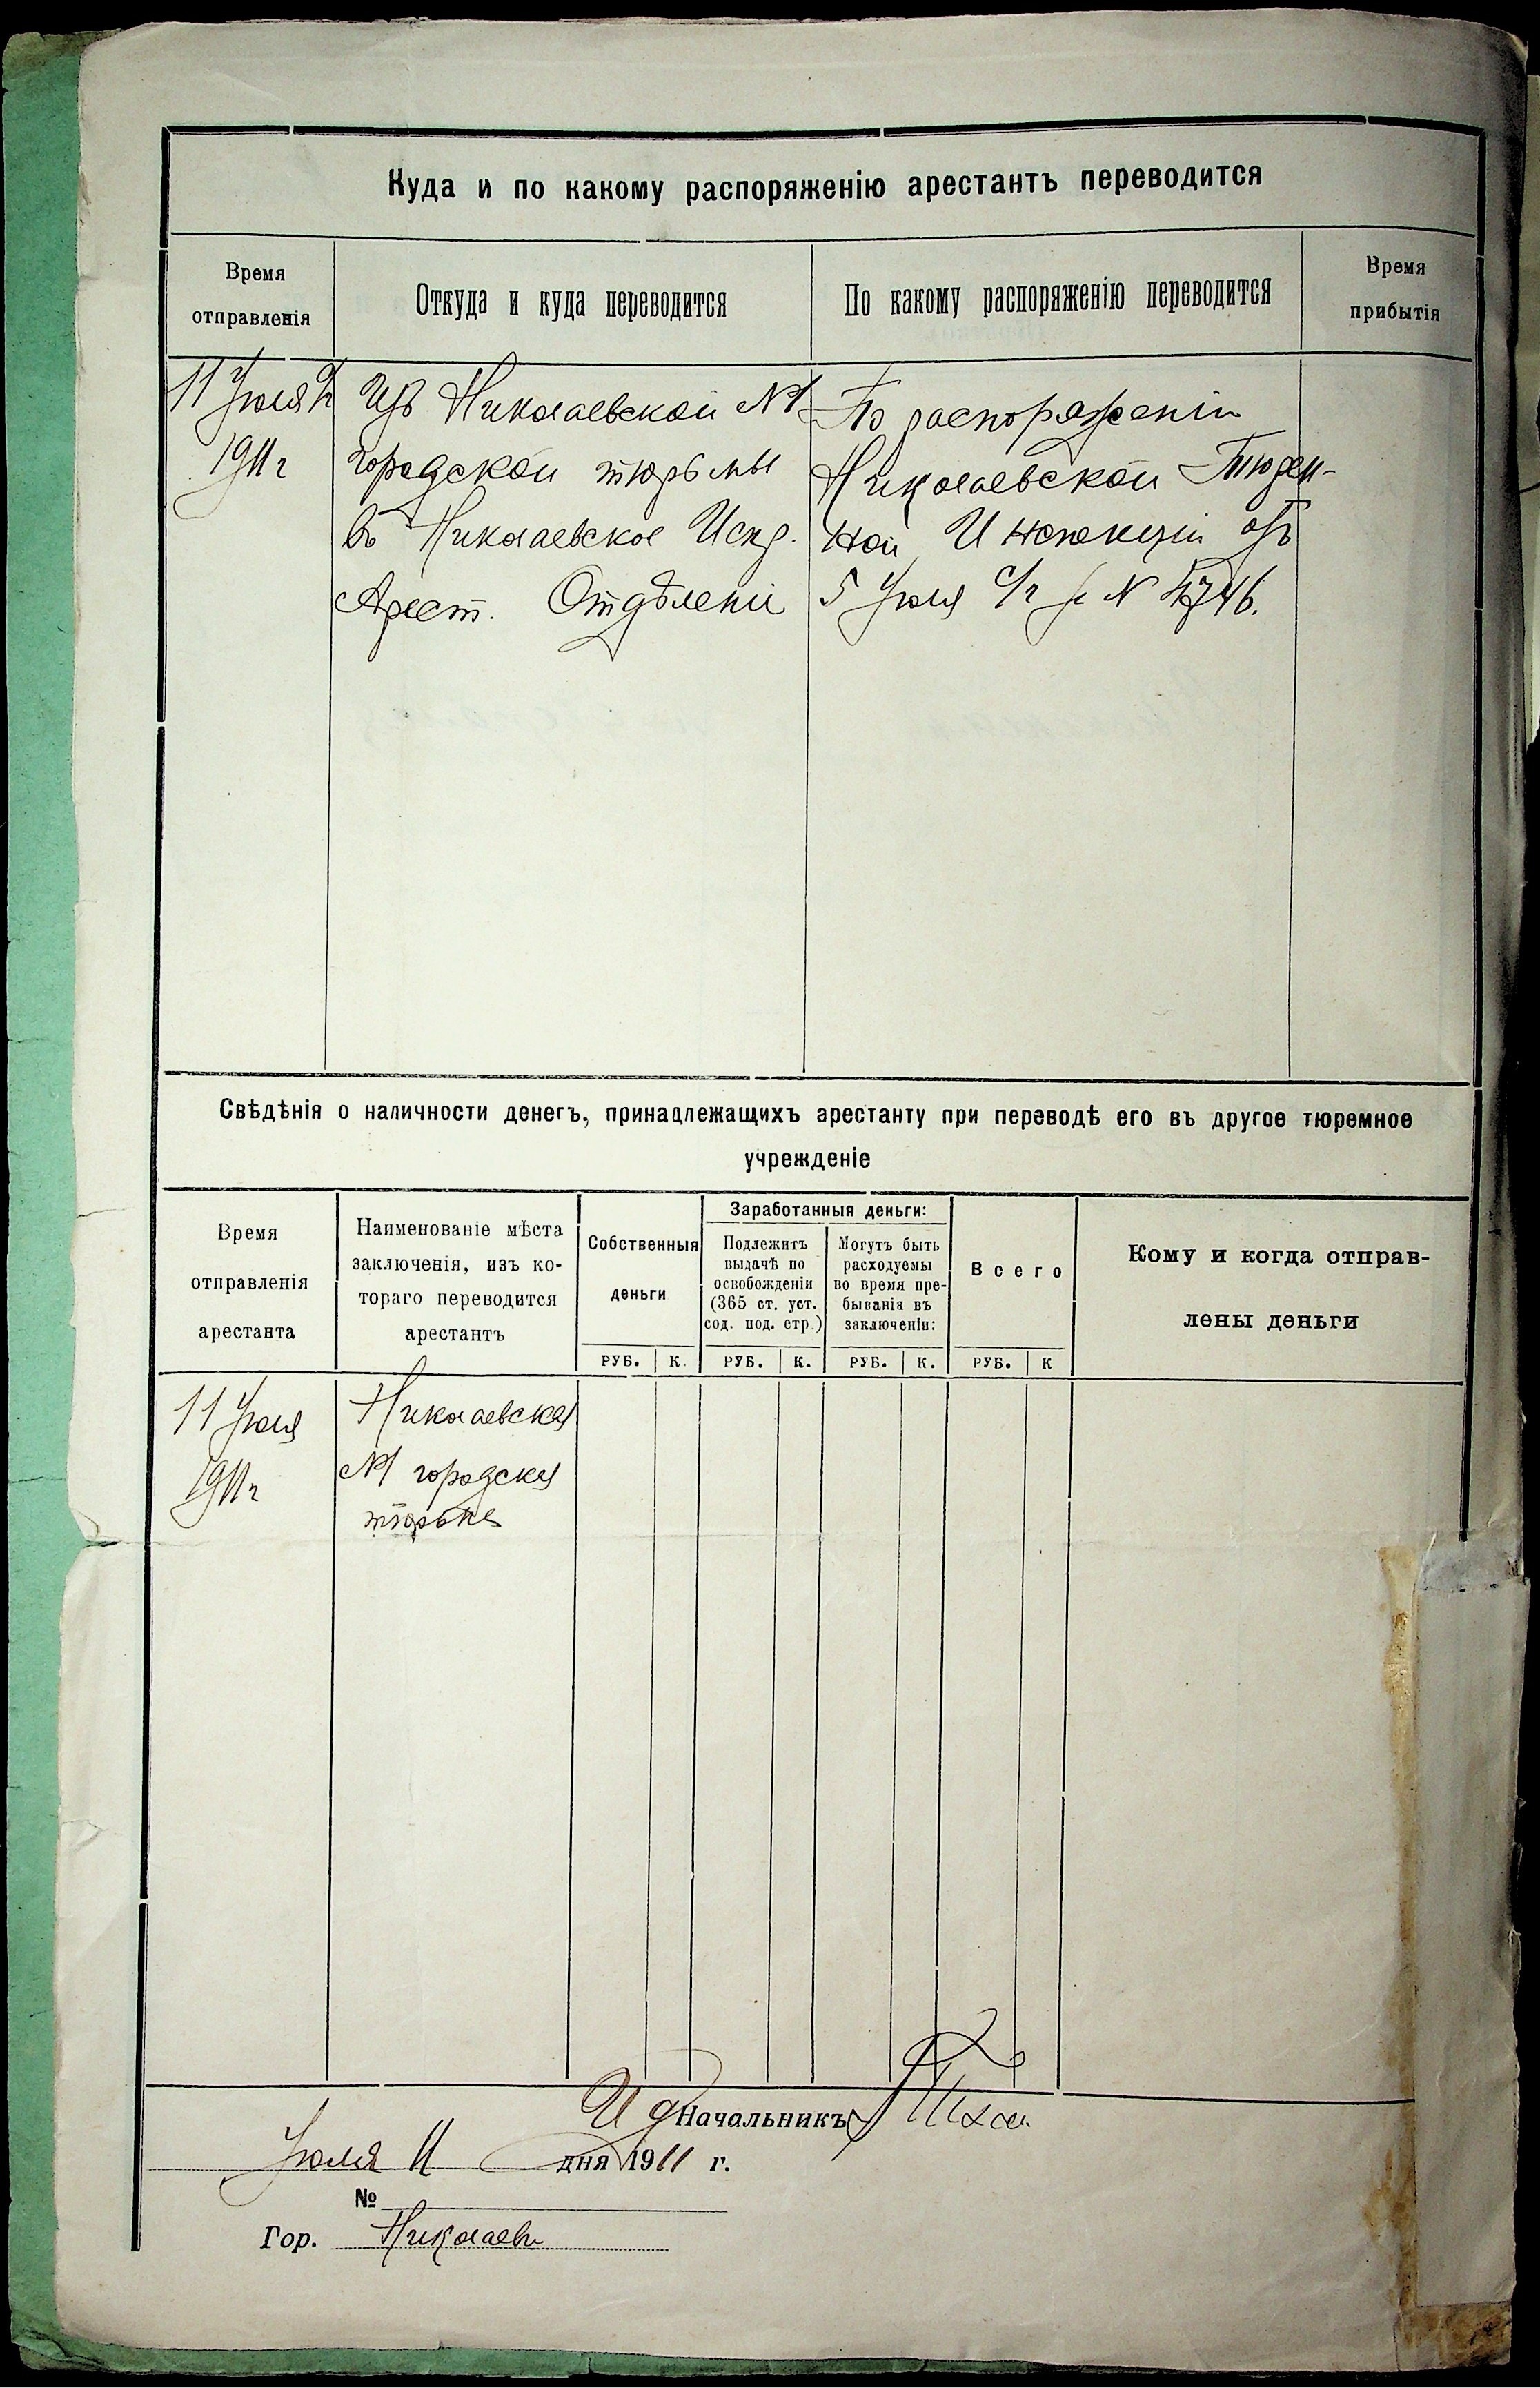 Куда и по какому распоряженію арестантъ переводится
Время
отправленія
Откуда и куда переводится
По какому распоряженію переводится
Время
прибытія
11 Іюля
1911 г
Изъ Николаевской №1
городской тюрьмы
въ Николаевское Испр.
Арест. Отдѣленіе
По распоряженію
Николаевской Тюрем-
ной Инспекціи отъ
5 Іюля с/г за №
Свѣдѣнія о наличности денегъ, принадлежащихъ арестанту при переводѣ его въ другое тюремное
учрежденіе
Время
отправленія
арестанта
Наименованіе мѣста
заключенія, изъ ко-
тораго переводится
арестантъ
Собственныя
деньги
Заработанныя деньги:
Подлежитъ
выдачѣ по
освобожденіи
(365 ст. уст.
сод. под. стр.)
Могутъ быть
расходуемы
во время пре-
быванія въ
заключеніи:
Всего
Кому и когда отправ-
лены деньги
РУБ. К. РУБ. К. РУБ. К. РУБ. К
11 Іюля
1911 г
Николаевская
№1 городская
тюрьма
И д Начальникъ
Іюля 11 дня 1911 г.
№
Гор. Николаевъ